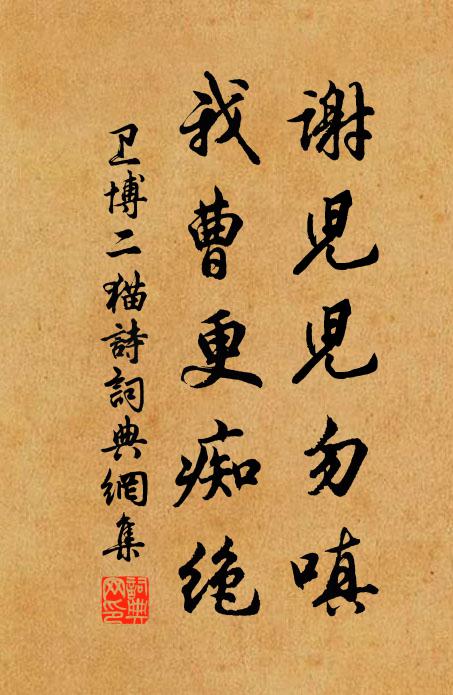 謝児児勿嗔
我曹更痴绝
卫博二猫詩詞典網集
詞典